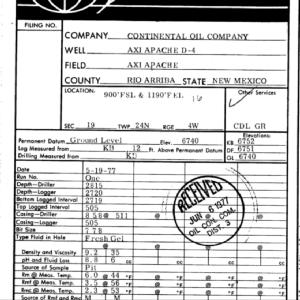 FILING NO.
COMPANY CONTINENTAL OIL COMPANY
WELL AXI APACHE D-4
FIELD AXI APACHE
COUNTY RIO ARRIBA STATE NEW MEXICO
LOCATION: Other Services
900'FSL & 1190'FEL 16
SEC 19 TWP 24N RGE 4W CDL GR
Elevations:
Permanent Datum Ground Level Elev. 6740 KB 6752
Log Measured from KB 12 Ft. Above Permanent Datum DF 6751
Drilling Measured from KB GL 6740
Date 5-19-77
Run No. One
Depth-Driller 2815
Depth-Logger 2720
Bottom Logged Interval 2719
Top Logged Interval 505
Casing-Driller 8 5/8 @ 511
Casing-Logger 505
Bit Size 7 7/8
Type Fluid in Hole Fresh Gel
Density and Viscosity 9.2 35
pH and Fluid Loss 8.8 6
Source of Sample Pit
Rm @ Meas. Temp. 6.0 @ 44 °F
Rmf @ Meas. Temp. 3.5 @ 56 °F
Rmc @ Meas. Temp. 2.3 @ 53 °F
Source of Rmf and Rmc M
RECEIVED
JUN 6 1977
OIL CON. COM.
DIST. 3